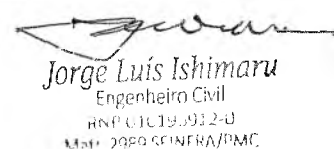 Jorge Luís Ishimaru
Engenheiro Civil
RNP
Matr. 2989 SEINFRA/PMC